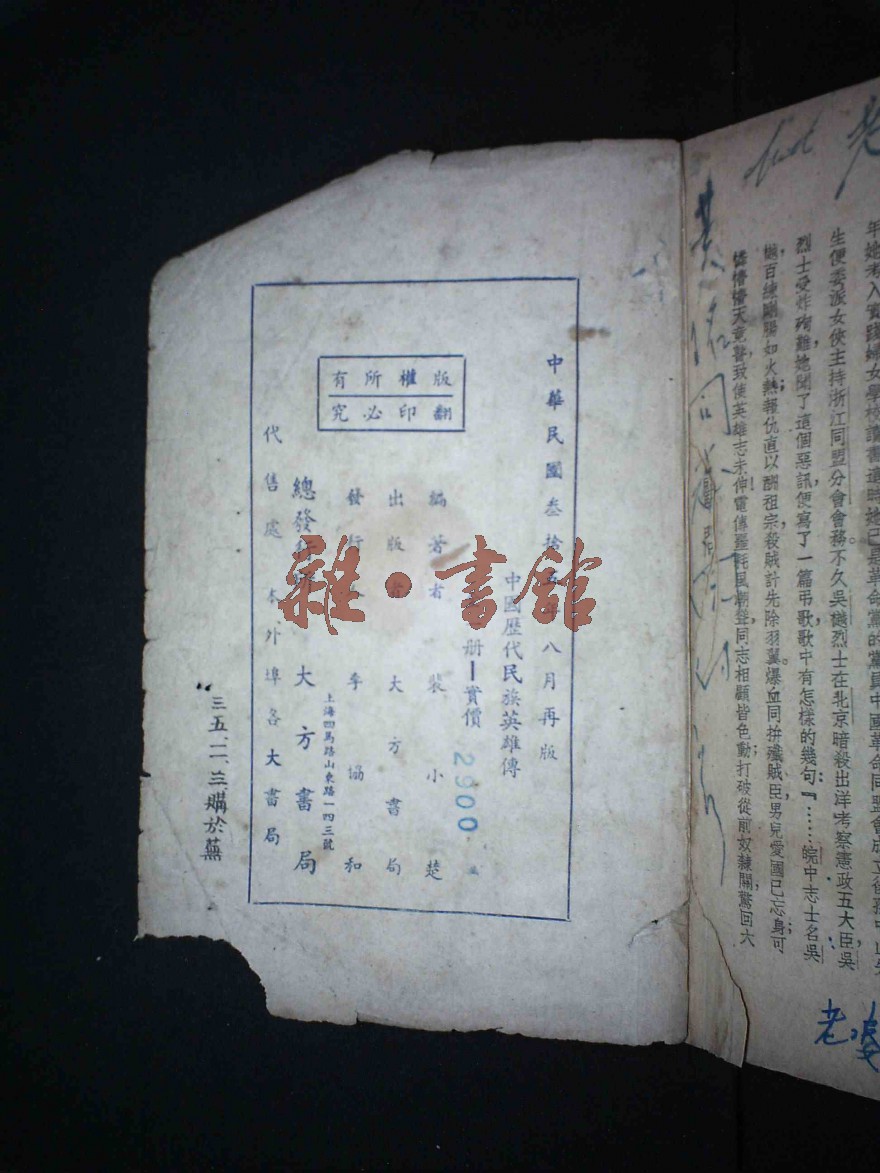 年她考入實踐婦女學校讀書這時她已是革命黨的黨員中國革命同盟會成立後孫中山先
生便委派女俠主持浙江同盟分會會務不久吳樾烈士在北京暗殺出洋考察憲政五大臣吳
烈士受炸殉難她聞了這個惡訊便寫了一篇弔歌歌中有怎樣的幾句：『……皖中志士名吳
樾百練剛腸如火熱報仇直以酬祖宗殺賊計先除羽翼爆血同拚殲賊臣男兒愛國已忘身可
憐懵懵天竟瞽致使英雄志未伸電傳噩耗風潮聳同志相顧皆色動打破從前奴隸關驚回大
老婆
中華民國叁拾五年八月再版
中國歷代民族英雄傳
册—實價 2900
編著者 裴小楚
出版者 大方書局
發行人 李協和
總發行所 大方書局
上海四馬路山東路一四三號
代售處 本外埠各大書局
版權所有
翻印必究
三五、二、三、購於蕪
雜·書館